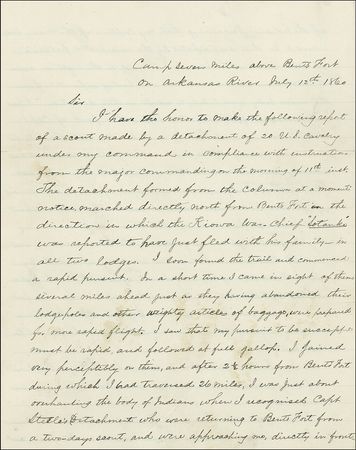 Camp seven miles above Bents Fort
on Arkansas River July 12th 1860
Sir
I have the honor to make the following report
of a scout made by a detachment of 20 U.S. Cavalry
under my command in compliance with instruction
from the major commanding on the morning of 11th inst.
The detachment formed from the Column at a moment
notice, marched directly north from Bents Fort in the
direction in which the Kiowa War Chief "Satank"
was reported to have just fled with his family in
all two lodges. I soon found the trail and commenced
a rapid pursuit. In a short time I came in sight of them
several miles ahead just as they having abandoned their
lodgepoles and other weighty articles of baggage, were prepared
for more rapid flight. I saw that my pursuit to be successful
must be rapid, and followed at full gallop. I gained
very perceptibly on them, and after 2½ hours from Bents Fort
during which I had traversed 26 miles, I was just about
overhauling the body of Indians when I recognised Capt
Steele's Detachment who were returning to Bents Fort from
a two-days scout, and were approaching me, directly in front,